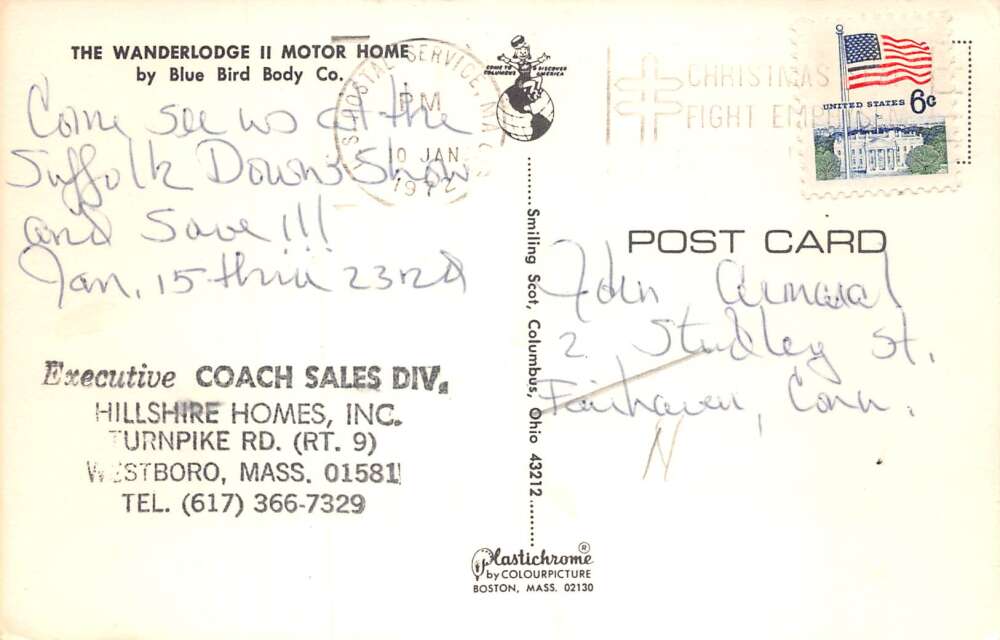 THE WANDERLODGE II MOTOR HOME
by Blue Bird Body Co.
Come see us at the
Suffolk Downs Show
and Save!!!
Jan. 15 thru 23rd
Executive COACH SALES DIV.
HILLSHIRE HOMES, INC.
TURNPIKE RD. (RT. 9)
WESTBORO, MASS. 01581
TEL. (617) 366-7329
COME TO COLUMBUS & DISCOVER AMERICA
POSTAL SERVICE, MA
PM
10 JAN
1972
CHRISTMAS
FIGHT
UNITED STATES 6c
Smiling Scot, Columbus, Ohio 43212
POST CARD
John
2 Studley St.
Fairhaven, Conn.
N
Plastichrome®
by COLOURPICTURE
BOSTON, MASS. 02130